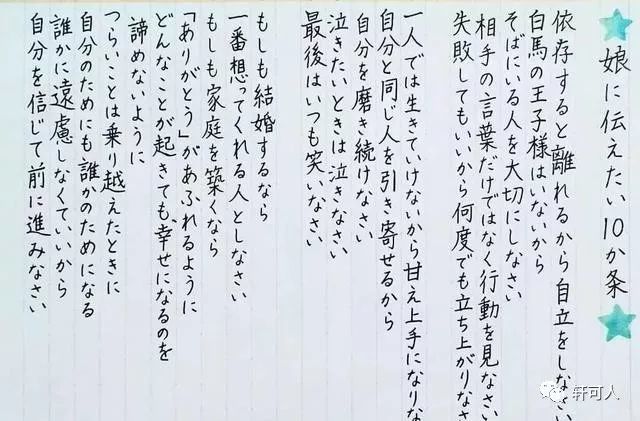 娘に伝えたい10か条
依存すると離れるから自立をしなさい
白馬の王子様はいないから
そばにいる人を大切にしなさい
相手の言葉だけではなく行動を見なさい
失敗してもいいから何度でも立ち上がりなさ
一人では生きていけないから甘え上手になりな
自分と同じ人を引き寄せるから
自分を磨き続けなさい
泣きたいときは泣きなさい
最後はいつも笑いなさい
もしも結婚するなら
一番想ってくれる人としなさい
もしも家庭を築くなら
「ありがとう」があふれるように
どんなことが起きても、幸せになるのを
諦めないように
つらいことは乗り越えたときに
自分のためにも誰かのためになる
誰かに遠慮しなくていいから
自分を信じて前に進みなさい
轩可人